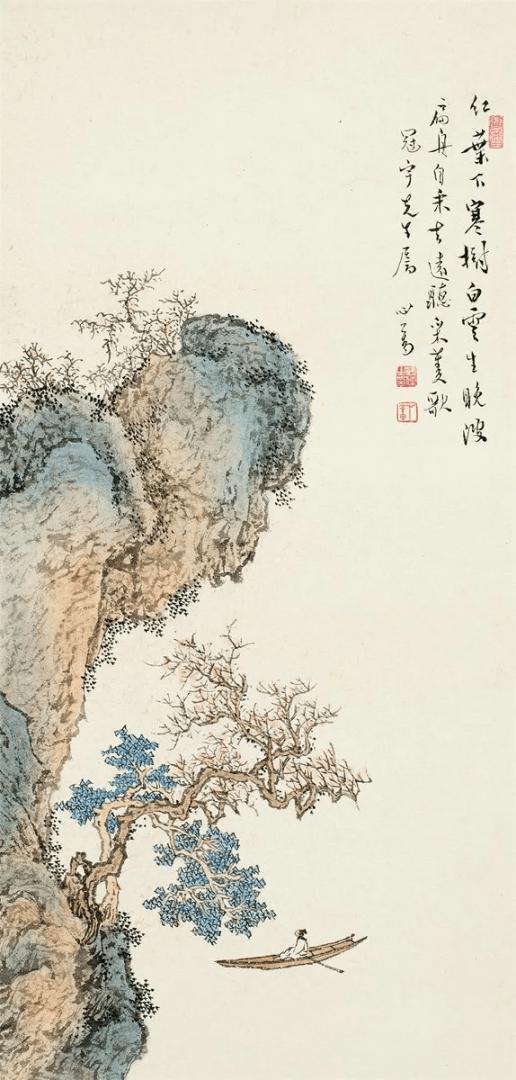 红葉下寒樹白雲生晚波
扁舟自乘去遠聽采菱歌
冠宇先生屬 心畬